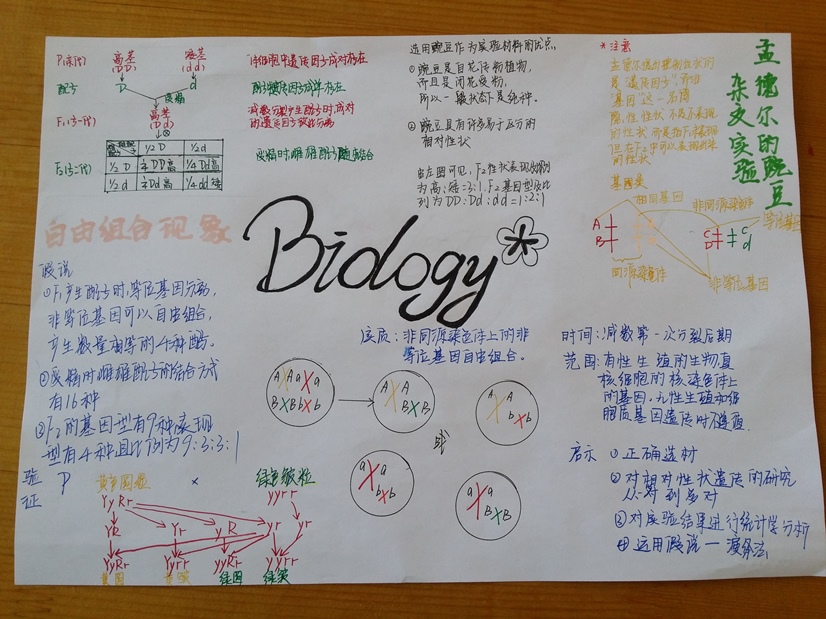 P(亲代) 高茎 矮茎
(DD) (dd)
配子 D d
受精
F₁(子一代) 高茎
(Dd)
⊗
F₂(子二代)
½D ½d
½D ¼DD高 ¼Dd高
½d ¼Dd高 ¼dd矮
体细胞中遗传因子成对存在
配子中遗传因子成单存在
减数分裂产生配子时,成对
的遗传因子彼此分离
受精时,雌雄配子随机结合
选用豌豆作为实验材料的优点。
①豌豆是自花传粉植物,
而且是闭花受粉,
所以一般状态下是纯种。
②豌豆具有许多易于区分的
相对性状
由左图可见,F₂性状表现比例
为高:矮=3:1.F₂基因型及比
例为DD:Dd:dd=1:2:1
*注意
孟德尔
是“遗传因子”,而非
“基因”这一名词
的性状,而是指F₁未表现
但在F₂中可以表现出来
的性状
基因类
相同基因
非同源染色体
等位基因
A
B
C C
D d
同源染色体
非等位基因
孟德尔的豌豆
杂交实验
自由组合现象
Biology
假说
①F₁产生配子时,等位基因分离,
非等位基因可以自由组合,
产生数量相等的4种配子。
②受精时雌雄配子的结合方式
有16种
③F₂的基因型有9种,表现
型有4种且比例为9:3:3:1
实质:非同源染色体上的非
等位基因自由组合。
A A a a
B B b b
A A
B B
A A
b b
或
a a
b b
a a
B B
时间:减数第一次分裂后期
范围:有性生殖的生物,真
核细胞的核染色体上
的基因,无性生殖和细
胞质基因遗传时不遵循.
启示 ①正确选材
②对相对性状遗传的研究
从一对到多对
③对实验结果进行统计学分析
④运用假说—演绎法
验证 P 黄色圆粒 × 绿色皱粒
YyRr yyrr
YR Yr yR yr yr
YyRr Yyrr yyRr yyrr
黄圆 黄皱 绿圆 绿皱